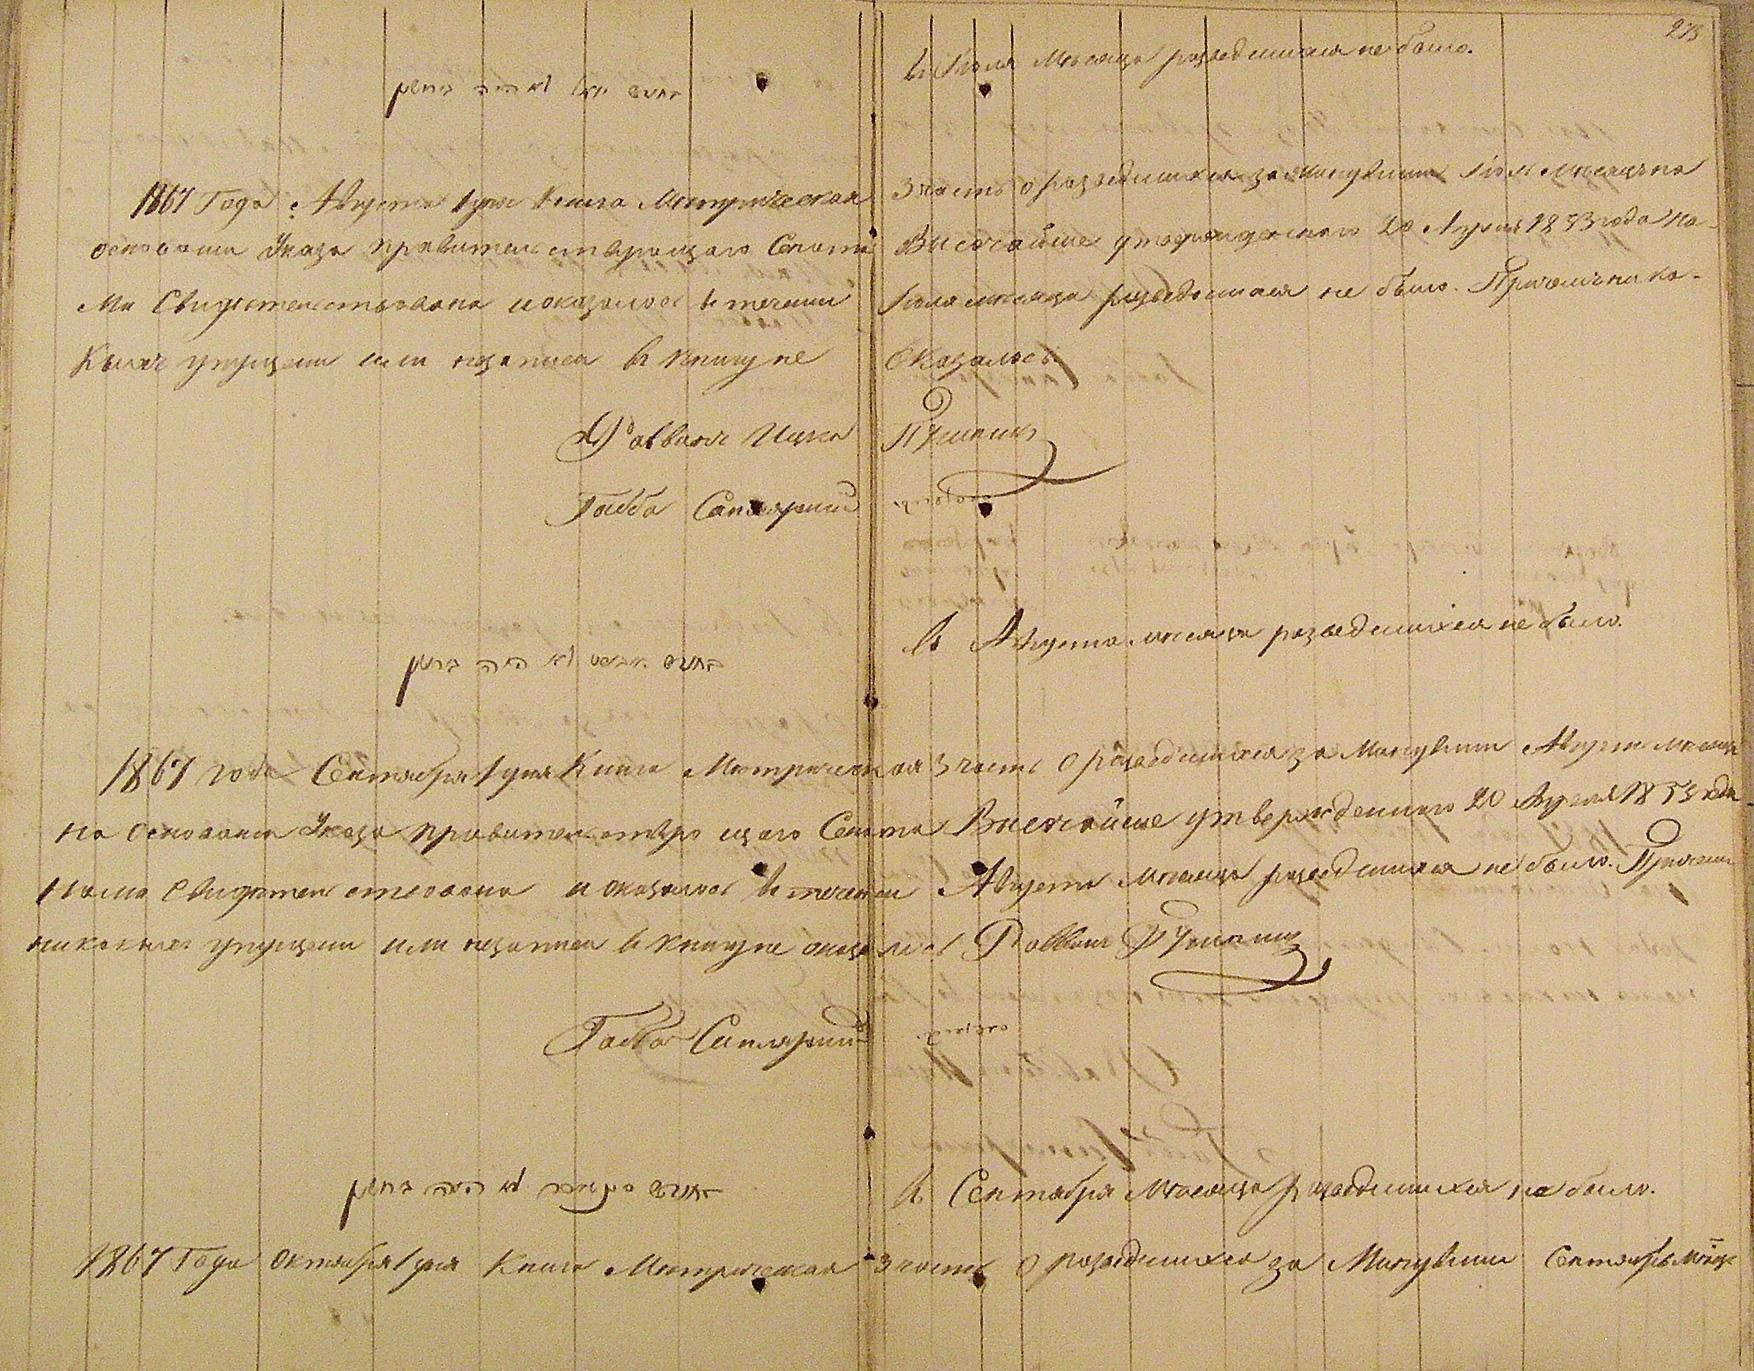 275
בחדש יולי לא היה גרושין
въ Июля Месяца разведшихся не было.
1867 Года Августа 1 дня Книга Метрическая 3 часть о разведшихся за минувший Июль месяцъ на
основании Указа Правительствующаго Сената Высочайше утвержденнаго 20 Апреля 1853 года на-
ми Свидетельствована и оказалось в течении Июля месяца разведшихся не было. Причемъ ника-
кихъ упущени или незаписи в книгу не Оказалось
Раввинъ Ицко
Габбе
בחדש אבגוסט לא היה גרושין
въ Августа месяца разведшихся не было.
1867 года Сентября 1 дня Книга Метрическая 3 часть О разведшихся за Минувши Августъ месяцъ
на Основании Указа Правительствующаго Сената Высочайше утвержденнаго 20 Апреля 1853 года
Нами Свидетельствована и оказалось в течении Августа Месяца разведшихся не было. Причемъ
никакихъ упущени или незаписи в книгу не оказалось Раввинъ
Габбе
בחדש סענטיאבר לא היה גרושין
въ Сентября Месяца разведшихся не было.
1867 Года Октября 1 дня Книга Метрическая 3 часть О разведшихся за Минувши Сентябрь Месяцъ